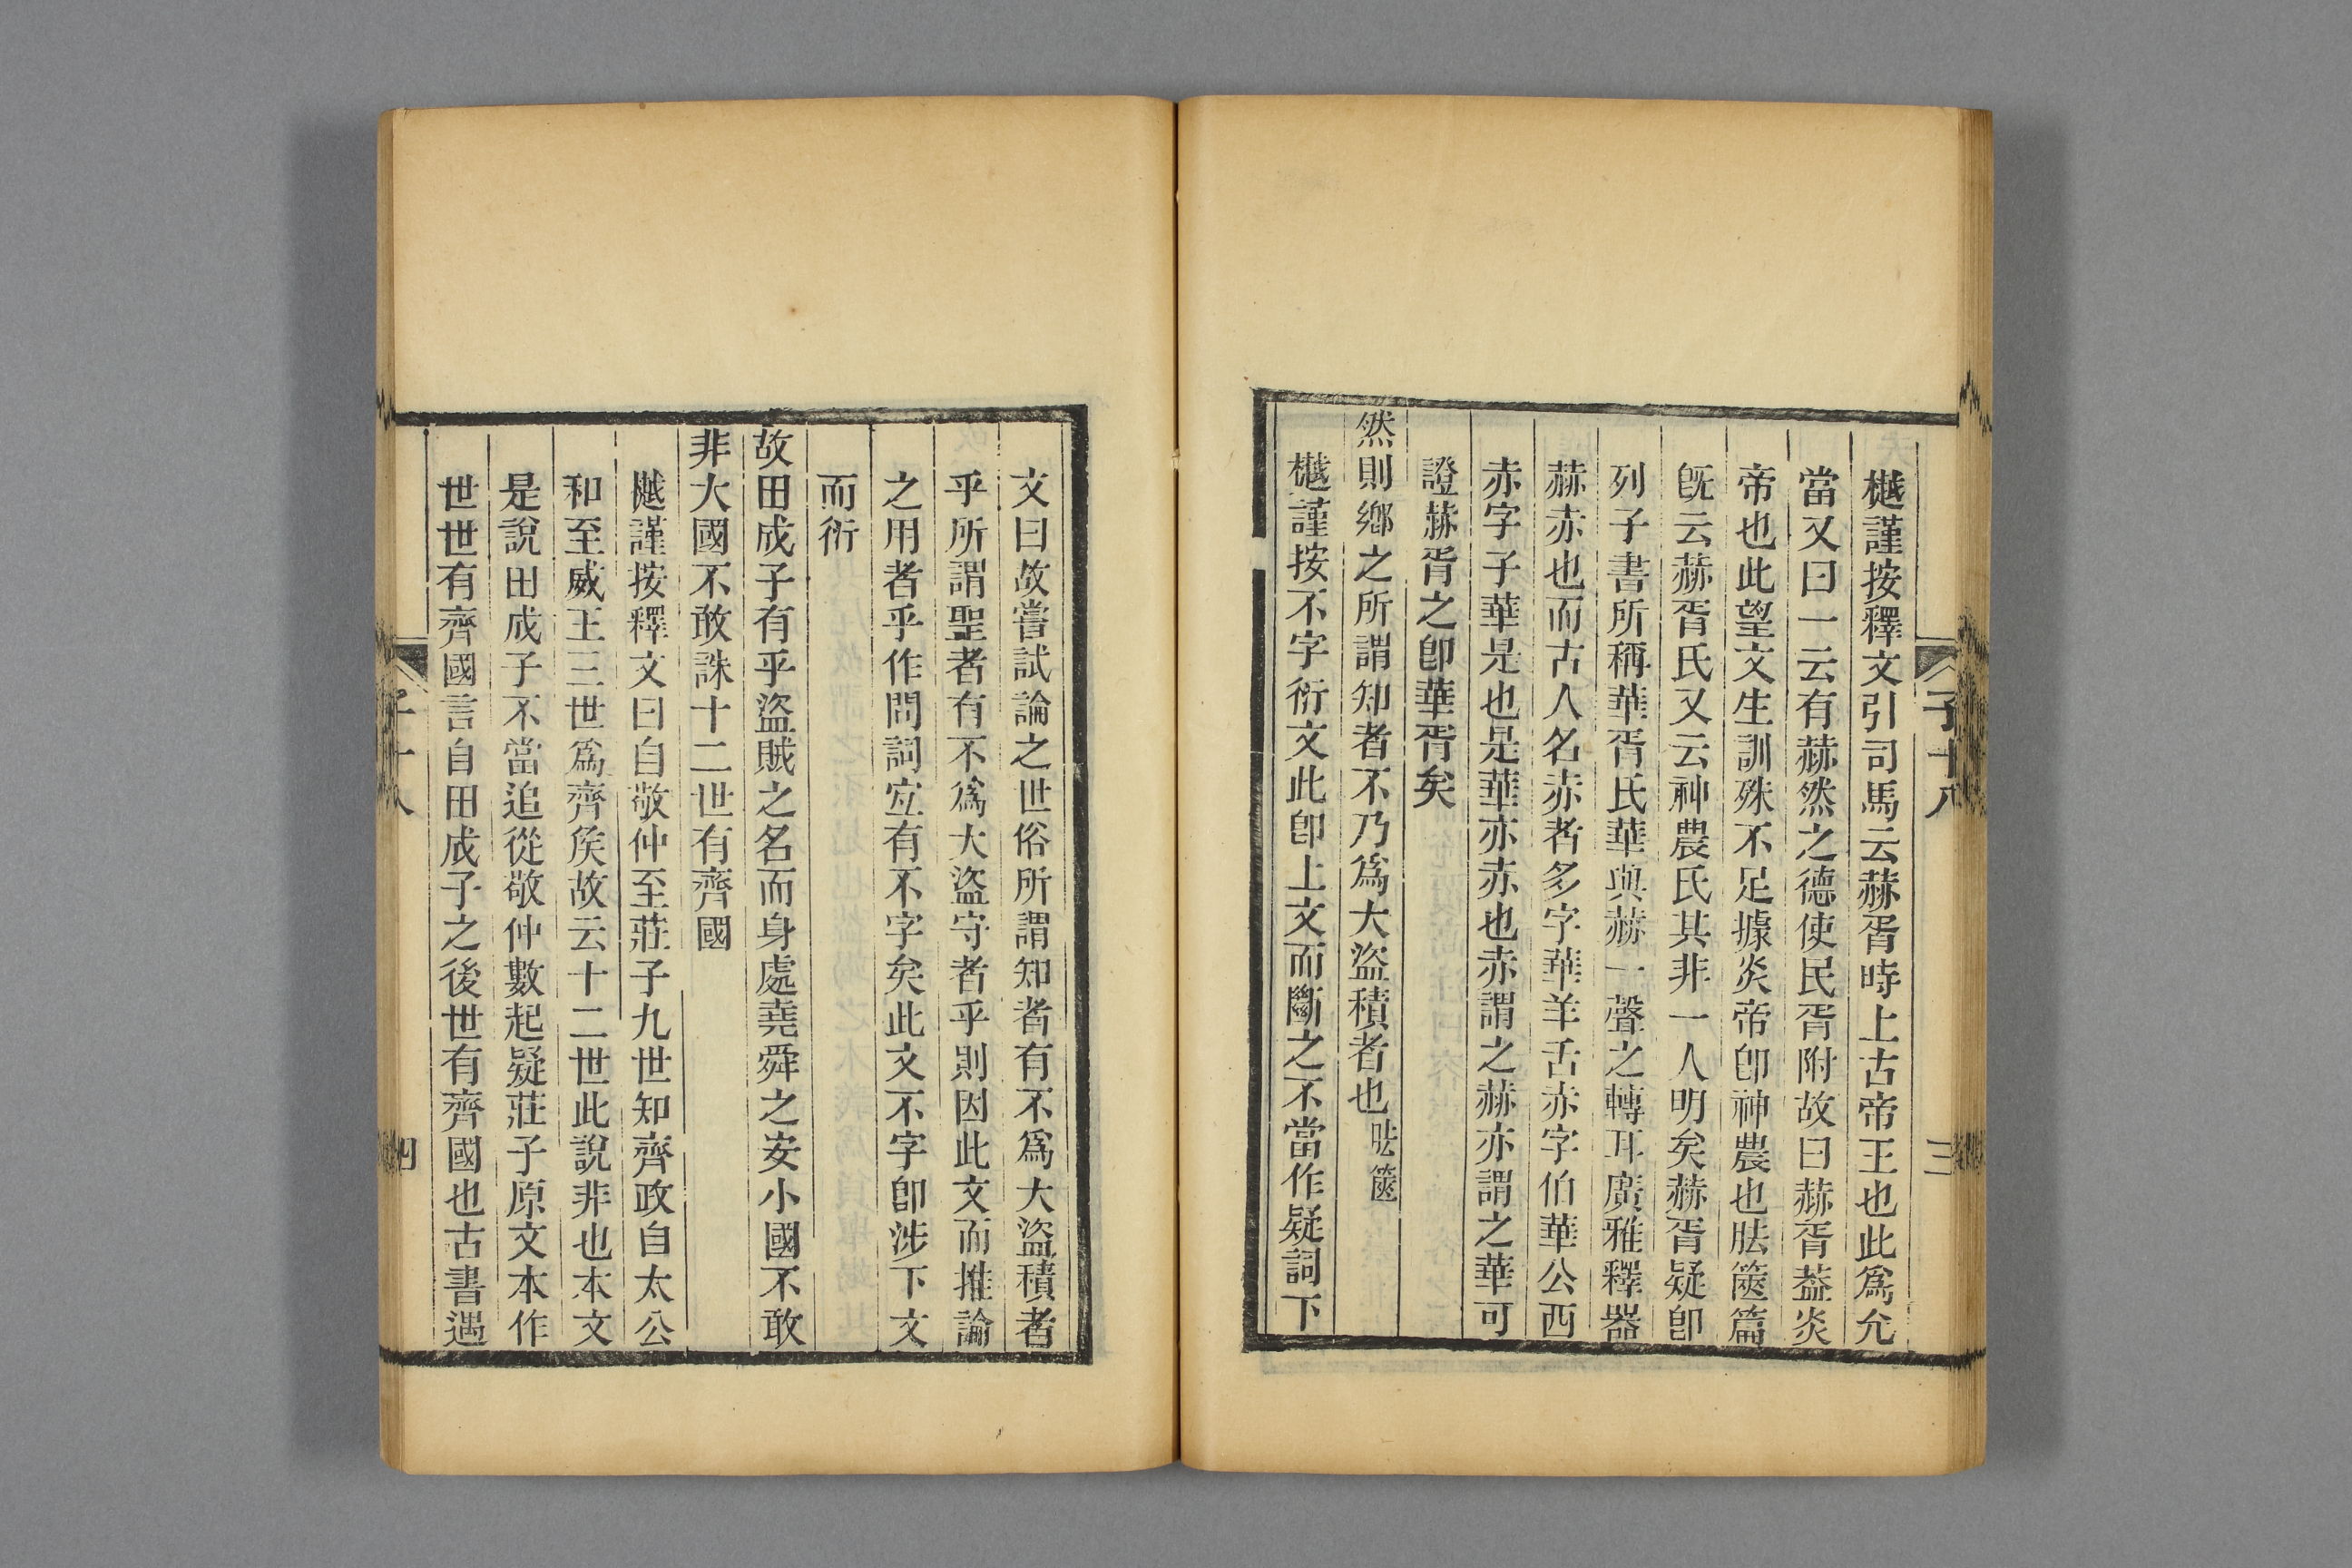 子十八
三
樾謹按釋文引司馬云赫胥時上古帝王也此爲允
當又曰一云有赫然之德使民胥附故曰赫胥葢炎
帝也此望文生訓殊不足據炎帝卽神農也胠篋篇
旣云赫胥氏又云神農氏其非一人明矣赫胥疑卽
列子書所稱華胥氏華與赫一聲之轉耳廣雅釋器
赫赤也而古人名赤者多字華羊舌赤字伯華公西
赤字子華是也是華亦赤也赤謂之赫亦謂之華可
證赫胥之卽華胥矣
然則鄉之所謂知者不乃爲大盜積者也胠篋
樾謹按不字衍文此卽上文而斷之不當作疑詞下
文曰故嘗試論之世俗所謂知者有不爲大盜積者
乎所謂聖者有不爲大盜守者乎則因此文而推論
之用者乎作問詞宐有不字矣此文不字卽涉下文
而衍
故田成子有乎盜賊之名而身處堯舜之安小國不敢
非大國不敢誅十二世有齊國
樾謹按釋文曰自敬仲至莊子九世知齊政自太公
和至威王三世爲齊矦故云十二世此說非也本文
是說田成子不當追從敬仲數起疑莊子原文本作
世世有齊國言自田成子之後世有齊國也古書遇
子十八
四